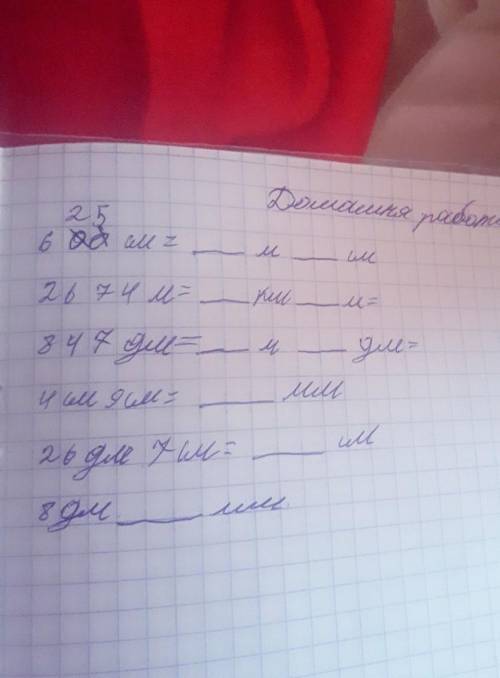 Домашняя работ
25
6 00 см = ___ м ___ см
2674 м = ___ км ___ м =
847 дм = ___ м ___ дм =
4 см 9 см = ___ мм
26 дм 7 см = ___ см
8 дм ___ мм